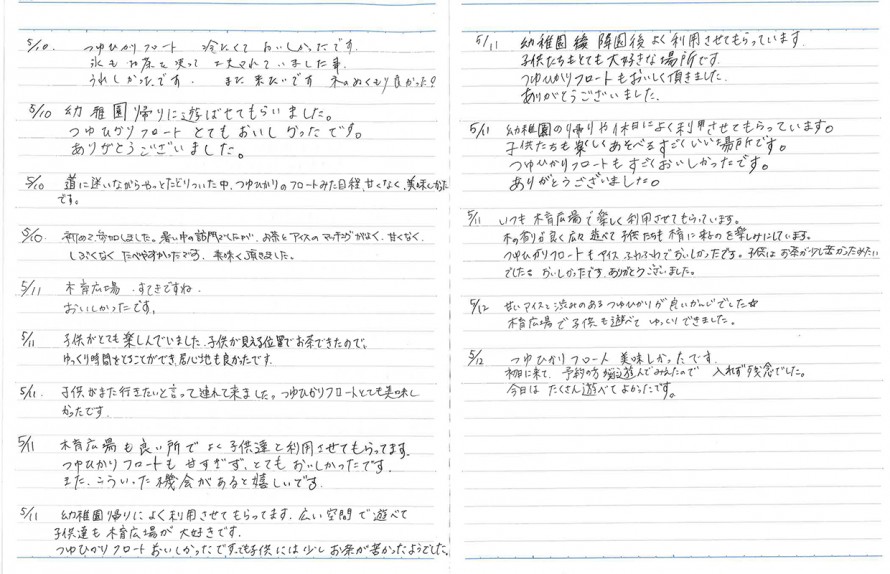 5/10. つゆひかりフロート 冷たくて おいしかったです.
氷も お茶を使って 工夫されていました
うれしかったです. また 来たいです 木のぬくもり良かった
5/10 幼稚園帰りに遊ばせてもらいました。
つゆひかりフロート とても おいしかったです。
ありがとうございました。
5/10 道に迷いながらやっとたどりついた中、つゆひかりのフロートみた目程、甘くなく、美味しかった
です。
5/10. 初めて参加しました。暑い中の訪問でしたが、お茶とアイスのマッチングがよく、甘くなく、
しぶくなく たべやすかったです. 美味く頂きました。
5/11 木育広場 すてきですね.
おいしかったです.
5/11 子供がとても楽しんでいました.子供が見える位置でお茶できたので、
ゆっくり時間をとることができ、居心地も良かったです.
5/11. 子供がまた行きたいと言って連れて来ました。つゆひかりフロートとても美味し
かったです.
5/11 木育広場も良い所で よく子供達と利用させてもらってます.
つゆひかりフロートも 甘すぎず、とても おいしかったです.
また、こういった機会があると嬉しいです.
5/11 幼稚園帰りによく利用させてもらってます. 広い空間で遊べて
子供達も木育広場が 大好きです.
つゆひかりフロートおいしかったです.でも子供には少しお茶が苦かったようでした.
5/11 幼稚園 降園後よく利用させてもらっています.
子供たちもとても大好きな場所です.
つゆひかりフロートもおいしく頂きました.
ありがとうございました.
5/11 幼稚園の帰りや休日によく利用させてもらっています。
子供たちも楽しくあそべるすごくいい場所です。
つゆひかりフロートもすごくおいしかったです。
ありがとうございました。
5/11 いつも木育広場で楽しく利用させてもらっています。
木の香りが良く広々遊べて子供たちも木育に来るのを楽しみにしています。
つゆひかりフロートもアイスふわふわでおいしかったです。子供はお茶が少し苦かったみたい
でした おいしかったです.ありがとうございました。
5/12 甘いアイスと渋みのあるつゆひかりが良いかんじでした☆
木育広場で子供も遊べて ゆっくりできました。
5/12 つゆひかりフロート 美味しかったです.
来て、予約の方 遊んでみえたので 入れず残念でした。
今日は たくさん遊べてよかったです。